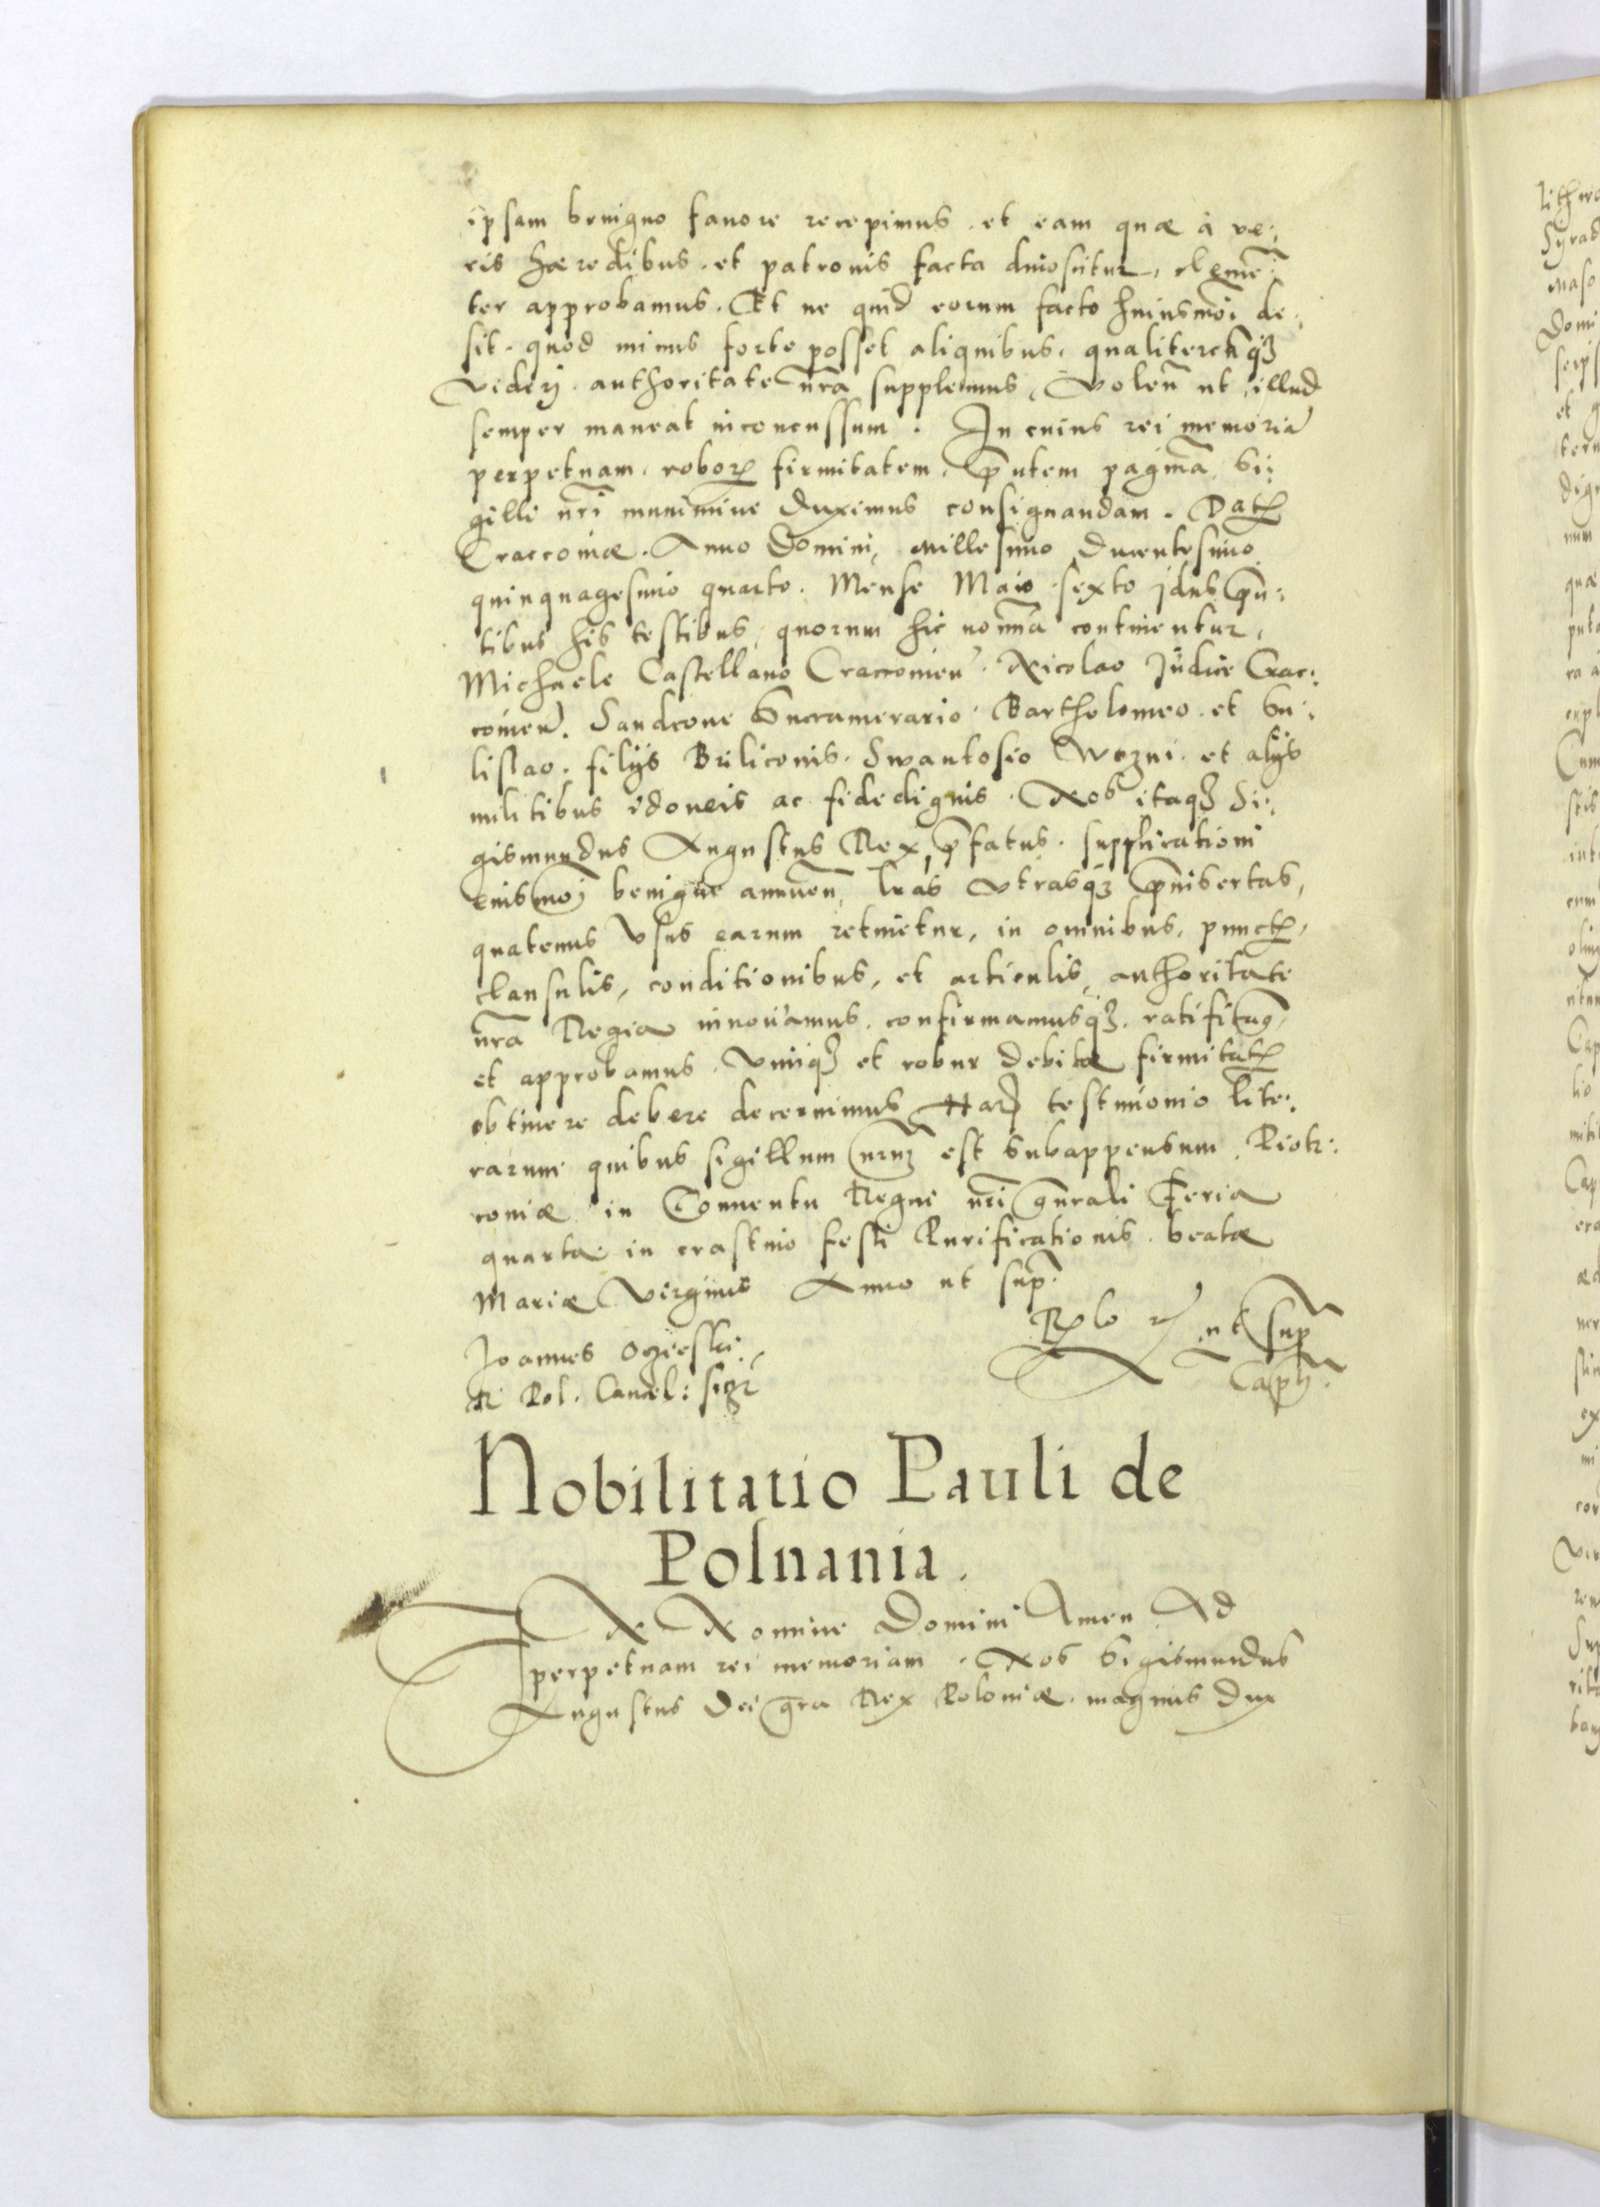 ipsam benigno fauore recepimus. et eam quæ à ve:
ris hæredibus. et patronis facta dinoscitur, clemẽ:
ter approbamus. Et ne quid eorum facto huiusmõi de:
sit. quod minus forte posset aliquibus. qualitercũq3
viderj. authoritate nr̃a supplemus, Volen̄ ut illud
semper maneat inconcussum. In cuius rei memoriã
perpetuam. robor firmitatem. p̃ntem paginã Si:
gilli nr̃i munimine duximus consignandam. Dat
Craccoviæ. Anno Domini, Millesimo Ducentesimo
quinquagesimo quarto. Mense Maio. sexto jdus p̃n:
tibus his testibus, quorum hic nom̃a continentur,
Michaele Castellano Craccouien̄. Nicolao Judice Crac:
couien̄. Sandcone Succamerario. Bartholomeo. et Su:
lislao. filijs Briliconis. Swantosio Wozni. et alijs
militibus idoneis ac fidedignis. Nos itaq3 Si:
gismundus Augustus Rex p̃fatus. supplicationi
euismõj benigne annuen̄, lr̃as vtrasq3 p̃insertas,
quatenus Vsus earum retinetur, in omnibus, punct,
clausulis, conditionibus, et articulis, authoritate
nr̃a Regia innouamus. confirmamusq3. ratificamꝯ,
et approbamus. Vimq3 et robur debitæ firmitat
obtinere debere decernimus Har testimonio lite:
rarum quibus sigillum nr̃um est Subappensum. Piotr:
couiæ in Conuentu Regni nr̃i gñrali Feria
quarta in crastino festi Purificationis. beatæ
Mariæ Virginis Anno ut sup̃.
Joannes Oczieski.
R Pol. Cancel: ssr̃
ut sup̃
Nobilitatio Pauli de
Polnania.
IN Nomine Domini Amen Ad
perpetuam rei memoriam. Nos Sigismundus
Augustus Dei gr̃a Rex Poloniæ. magnus Dux